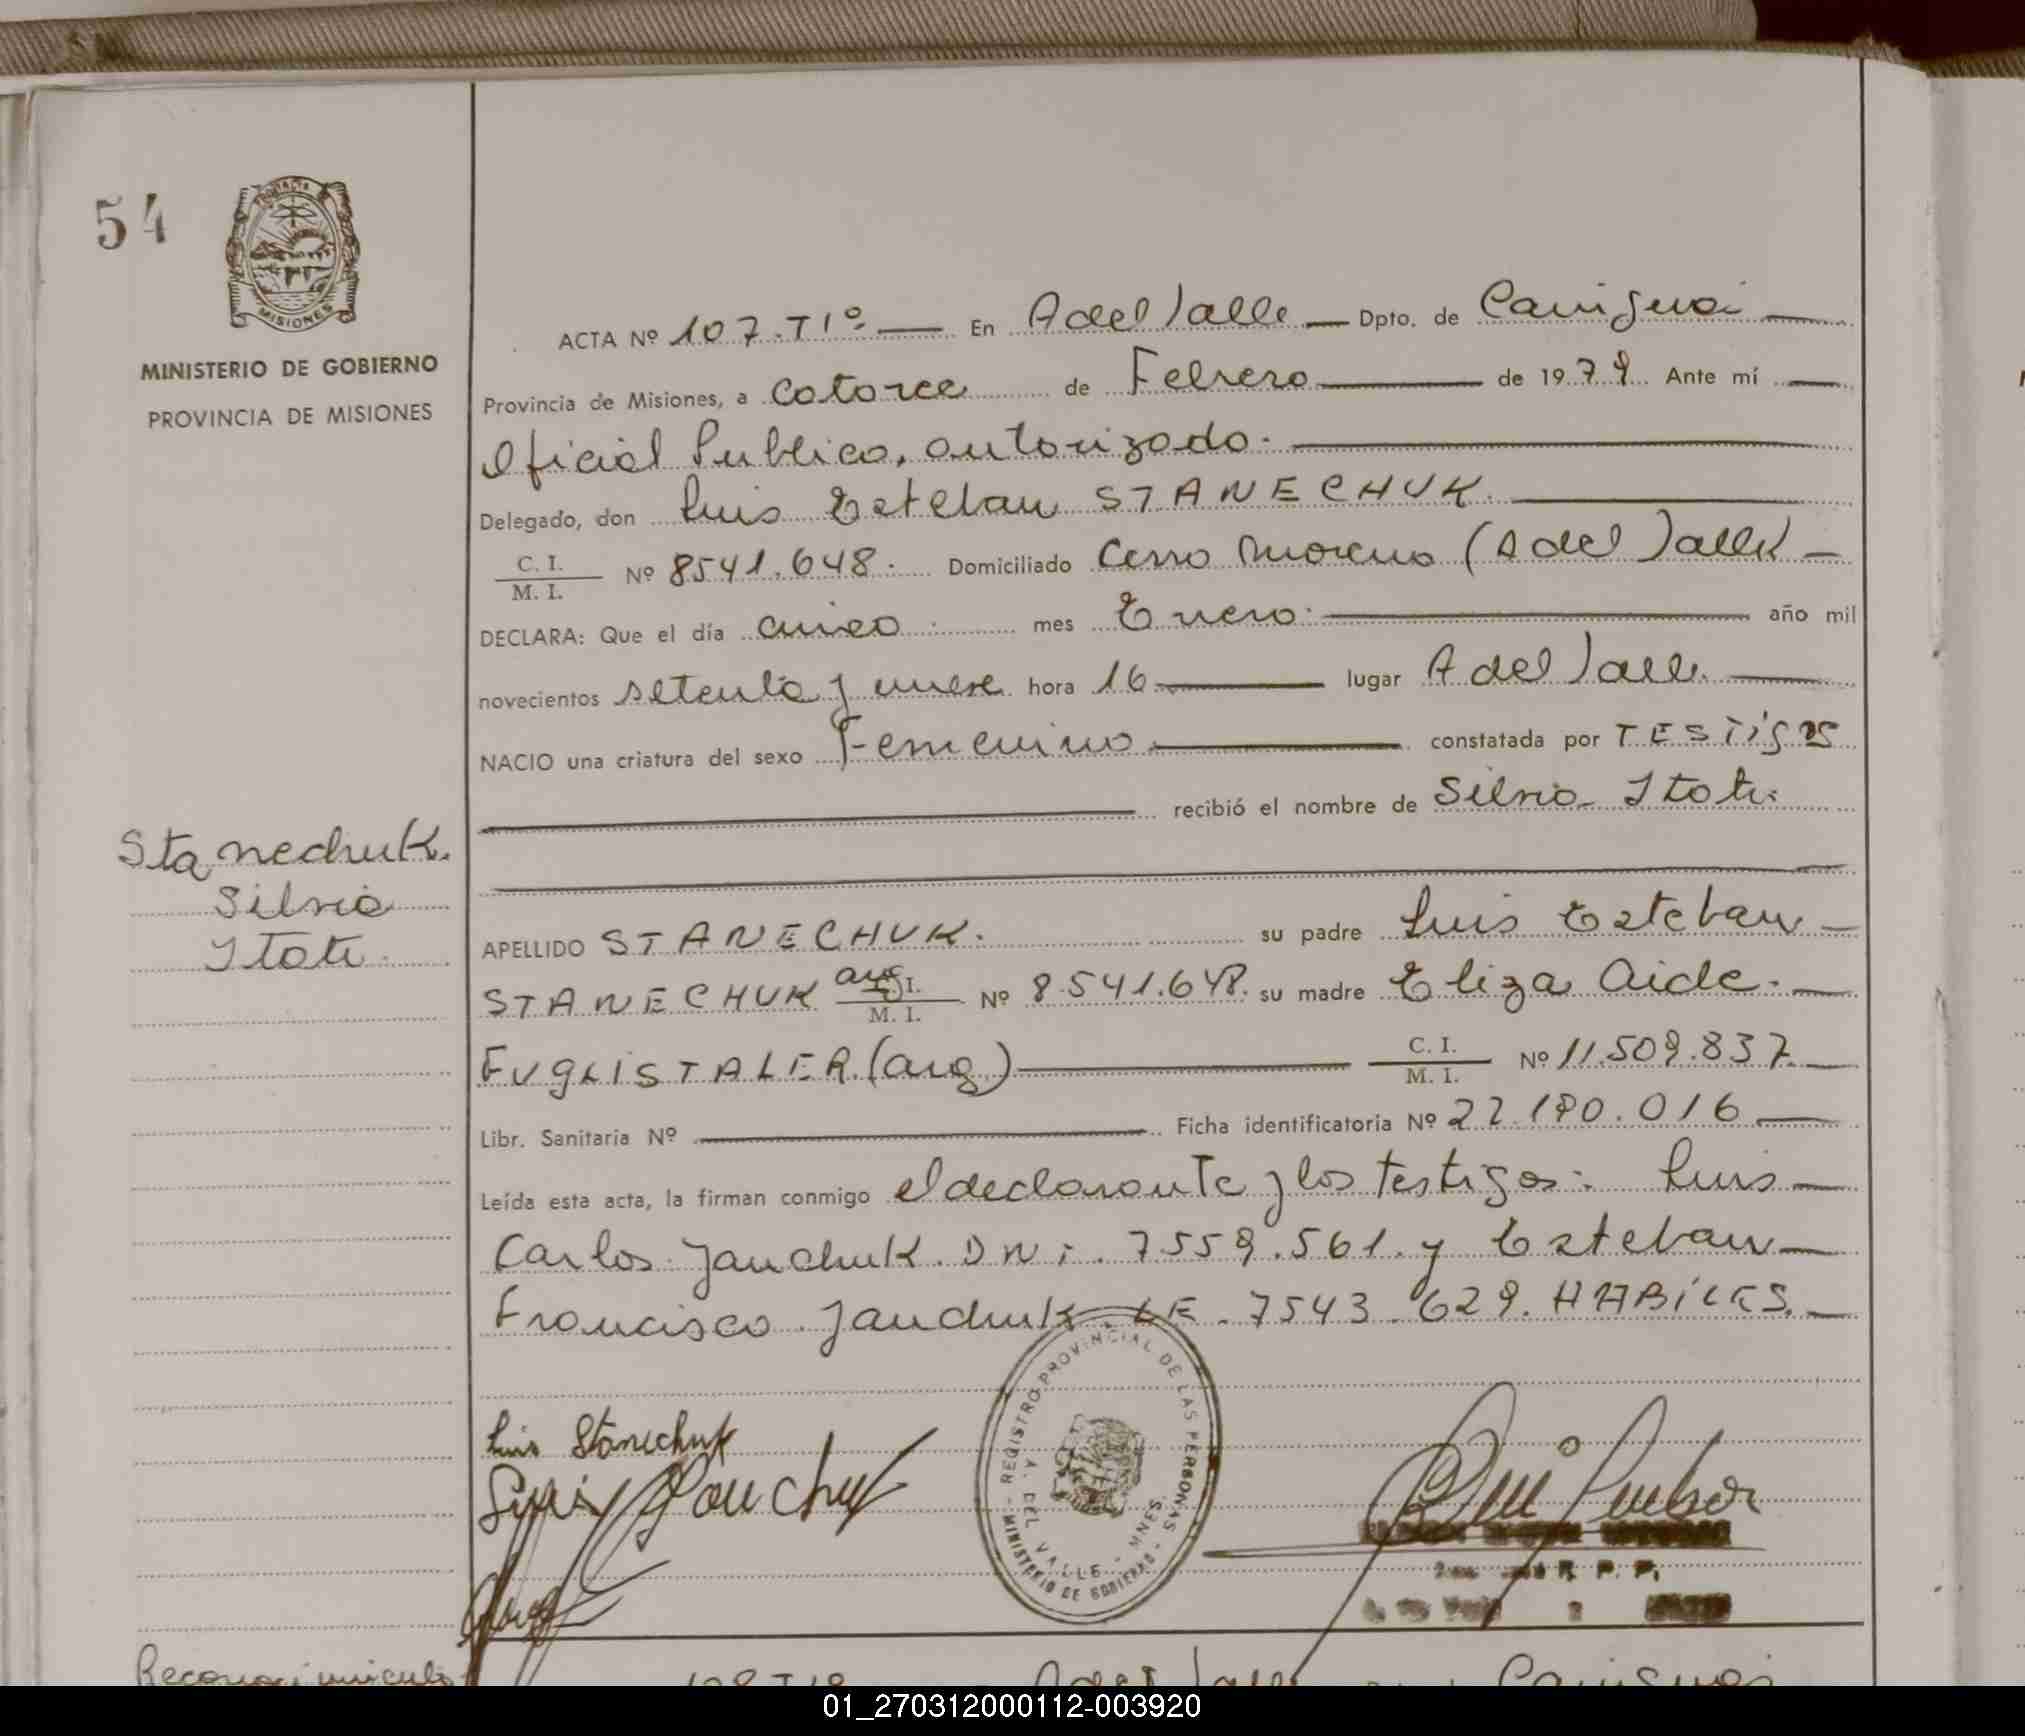 54
MISIONES
MINISTERIO DE GOBIERNO
PROVINCIA DE MISIONES
ACTA Nº 107.T1º. En A del Valle Dpto. de Cainguás
Provincia de Misiones, a catorce de Febrero de 1979 Ante mí
Oficial Publico, autorizado.
Delegado, don Luis Esteban STANECHUK.
C. I.
M. I.
Nº 8541.648. Domiciliado Cerro Moreno (A del Valle)
DECLARA: Que el día cinco mes Enero. año mil
novecientos setenta y nueve hora 16 lugar A del Valle.
NACIO una criatura del sexo Femenino constatada por TESTigos
recibió el nombre de Silvia Itati.
Stanechuk.
Silvia
Itati.
APELLIDO STANECHUK. su padre Luis Esteban
STANECHUK arg C. I.
M. I.
Nº 8.541.648. su madre Eliza Aide.
FUGLiSTALER.(arg.) C. I.
M. I.
Nº 11.509.837.
Libr. Sanitaria Nº Ficha identificatoria Nº 22.180.016
Leída esta acta, la firman conmigo el declarante y los testigos: Luis
Carlos Janchuk. DNi. 7559.561. y Esteban
Francisco Janchuk. LE. 7543.629. HABiLES.
Luis Stanechuk
Luis Janchuk
REGISTRO PROVINCIAL DE LAS PERSONAS
A. DEL VALLE - MNES.
MINISTERIO DE GOBIERNO
R. P. P.
Reconocimiento
108 T1º A del Valle Cainguás
01_270312000112-003920